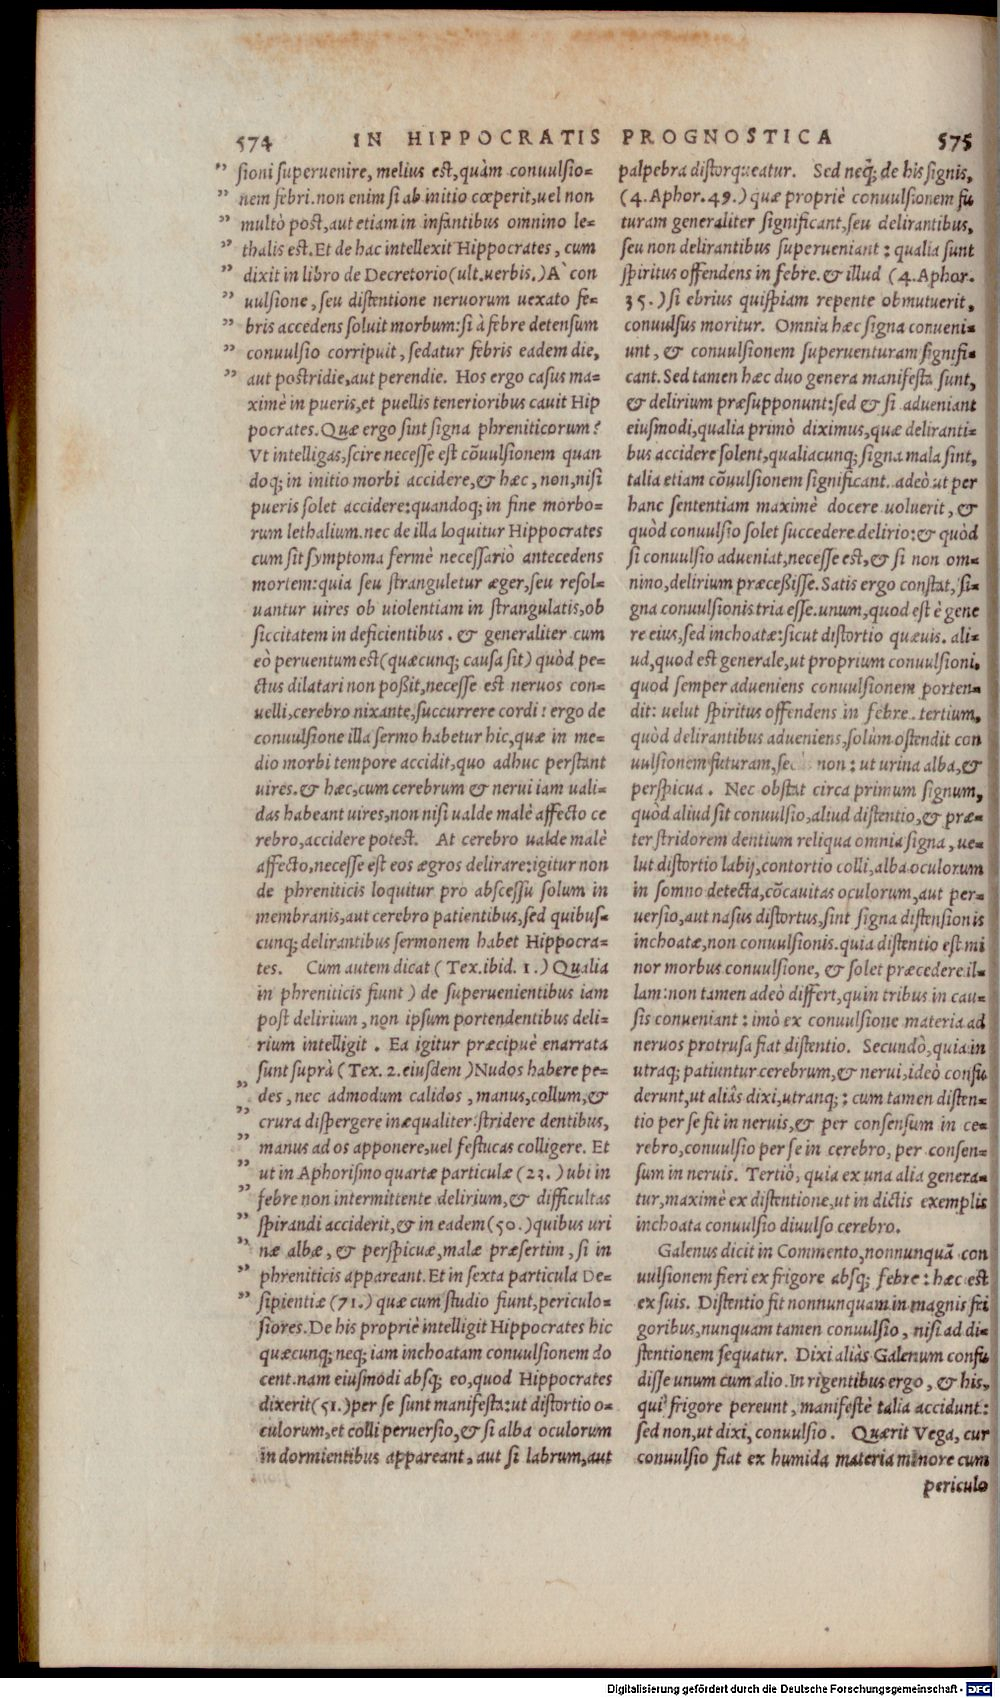 574 IN HIPPOCRATIS PROGNOSTICA 575
" sioni superuenire, melius est, quàm conuulsio=
" nem febri. non enim si ab initio cœperit, uel non
" multò post, aut etiam in infantibus omnino le=
" thalis est. Et de hac intellexit Hippocrates, cum
" dixit in libro de Decretorio (ult. uerbis.) A` con
" uulsione, seu distentione neruorum uexato fe=
" bris accedens soluit morbum: si à febre detensum
" conuulsio corripuit, sedatur febris eadem die,
" aut postridie, aut perendie. Hos ergo casus ma=
ximè in pueris, et puellis tenerioribus cauit Hip
pocrates. Quæ ergo sint signa phreniticorum?
Vt intelligas, scire necesse est cõuulsionem quan
doq; in initio morbi accidere, & hæc, non, nisi
pueris solet accidere: quandoq; in fine morbo=
rum lethalium. nec de illa loquitur Hippocrates
cum sit symptoma fermè necessariò antecedens
mortem: quia seu stranguletur æger, seu resol=
uantur uires ob uiolentiam in strangulatis, ob
siccitatem in deficientibus. & generaliter cum
eò peruentum est (quæcunq; causa sit) quòd pe=
ctus dilatari non poßit, necesse est neruos con=
uelli, cerebro nixante, succurrere cordi: ergo de
conuulsione illa sermo habetur hic, quæ in me=
dio morbi tempore accidit, quo adhuc perstant
uires. & hæc, cum cerebrum & nerui iam uali=
das habeant uires, non nisi ualde malè affecto ce
rebro, accidere potest. At cerebro ualde malè
affecto, necesse est eos ægros delirare: igitur non
de phreniticis loquitur pro abscessu solum in
membranis, aut cerebro patientibus, sed quibus=
cunq; delirantibus sermonem habet Hippocra=
tes. Cum autem dicat (Tex. ibid. 1.) Qualia
in phreniticis fiunt) de superuenientibus iam
post delirium, non ipsum portendentibus deli=
rium intelligit. Ea igitur præcipuè enarrata
sunt suprà (Tex. 2. eiusdem) Nudos habere pe=
" des, nec admodum calidos, manus, collum, &
" crura dispergere inæqualiter: stridere dentibus,
" manus ad os apponere, uel festucas colligere. Et
" ut in Aphorismo quartæ particulæ (23.) ubi in
" febre non intermittente delirium, & difficultas
" spirandi acciderit, & in eadem (50.) quibus uri
" næ albæ, & perspicuæ, malæ præsertim, si in
" phreniticis appareant. Et in sexta particula De=
" sipientiæ (71.) quæ cum studio fiunt, periculo=
siores. De his propriè intelligit Hippocrates hic
quæcunq; neq; iam inchoatam conuulsionem do
cent. nam eiusmodi absq; eo, quod Hippocrates
dixerit (51.) per se sunt manifesta: ut distortio o=
culorum, et colli peruersio, & si alba oculorum
in dormientibus appareant, aut si labrum, aut
palpebra distorqueatur. Sed neq; de his signis,
(4. Aphor. 49.) quæ propriè conuulsionem fu
turam generaliter significant, seu delirantibus,
seu non delirantibus superueniant: qualia sunt
spiritus offendens in febre. & illud (4. Aphor.
35.) si ebrius quispiam repente obmutuerit,
conuulsus moritur. Omnia hæc signa conueni=
unt, & conuulsionem superuenturam signifi=
cant. Sed tamen hæc duo genera manifesta sunt,
& delirium præsupponunt: sed & si adueniant
eiusmodi, qualia primò diximus, quæ deliranti=
bus accidere solent, qualiacunq; signa mala sint,
talia etiam cõuulsionem significant. adeò ut per
hanc sententiam maximè docere uoluerit, &
quòd conuulsio solet succedere delirio: & quòd
si conuulsio adueniat, necesse est, & si non om=
nino, delirium præceßisse. Satis ergo constat, si=
gna conuulsionis tria esse. unum, quod est è gene
re eius, sed inchoatæ: sicut distortio quæuis. ali=
ud, quod est generale, ut proprium conuulsioni,
quod semper adueniens conuulsionem porten=
dit: uelut spiritus offendens in febre. tertium,
quòd delirantibus adueniens, solùm ostendit con
uulsionem futuram, non: ut urina alba, &
perspicua. Nec obstat circa primum signum,
quòd aliud sit conuulsio, aliud distentio, & præ=
ter stridorem dentium reliqua omnia signa, ue=
lut distortio labij, contortio colli, alba oculorum
in somno detecta, cõcauitas oculorum, aut per=
uersio, aut nasus distortus, sint signa distensionis
inchoatæ, non conuulsionis. quia distentio est mi
nor morbus conuulsione, & solet præcedere il=
lam: non tamen adeò differt, quin tribus in cau=
sis conueniant: imò ex conuulsione materia ad
neruos protrusa fiat distentio. Secundò, quia in
utraq; patiuntur cerebrum, & nerui, ideò consi
derunt, ut aliâs dixi, utranq;: cum tamen disten=
tio per se fit in neruis, & per consensum in ce=
rebro, conuulsio per se in cerebro, per consen=
sum in neruis. Tertiò, quia ex una alia genera=
tur, maximè ex distentione, ut in dictis exemplis
inchoata conuulsio diuulso cerebro.
Galenus dicit in Commento, nonnunquã con
uulsionem fieri ex frigore absq; febre: hæc est
ex suis. Distentio fit nonnunquam in magnis fri
goribus, nunquam tamen conuulsio, nisi ad di=
stentionem sequatur. Dixi aliàs Galenum confu
disse unum cum alio. In rigentibus ergo, & his,
qui frigore pereunt, manifestè talia accidunt:
sed non, ut dixi, conuulsio. Quærit Vega, cur
conuulsio fiat ex humida materia minore cum
periculo
Digitalisierung gefördert durch die Deutsche Forschungsgemeinschaft - DFG